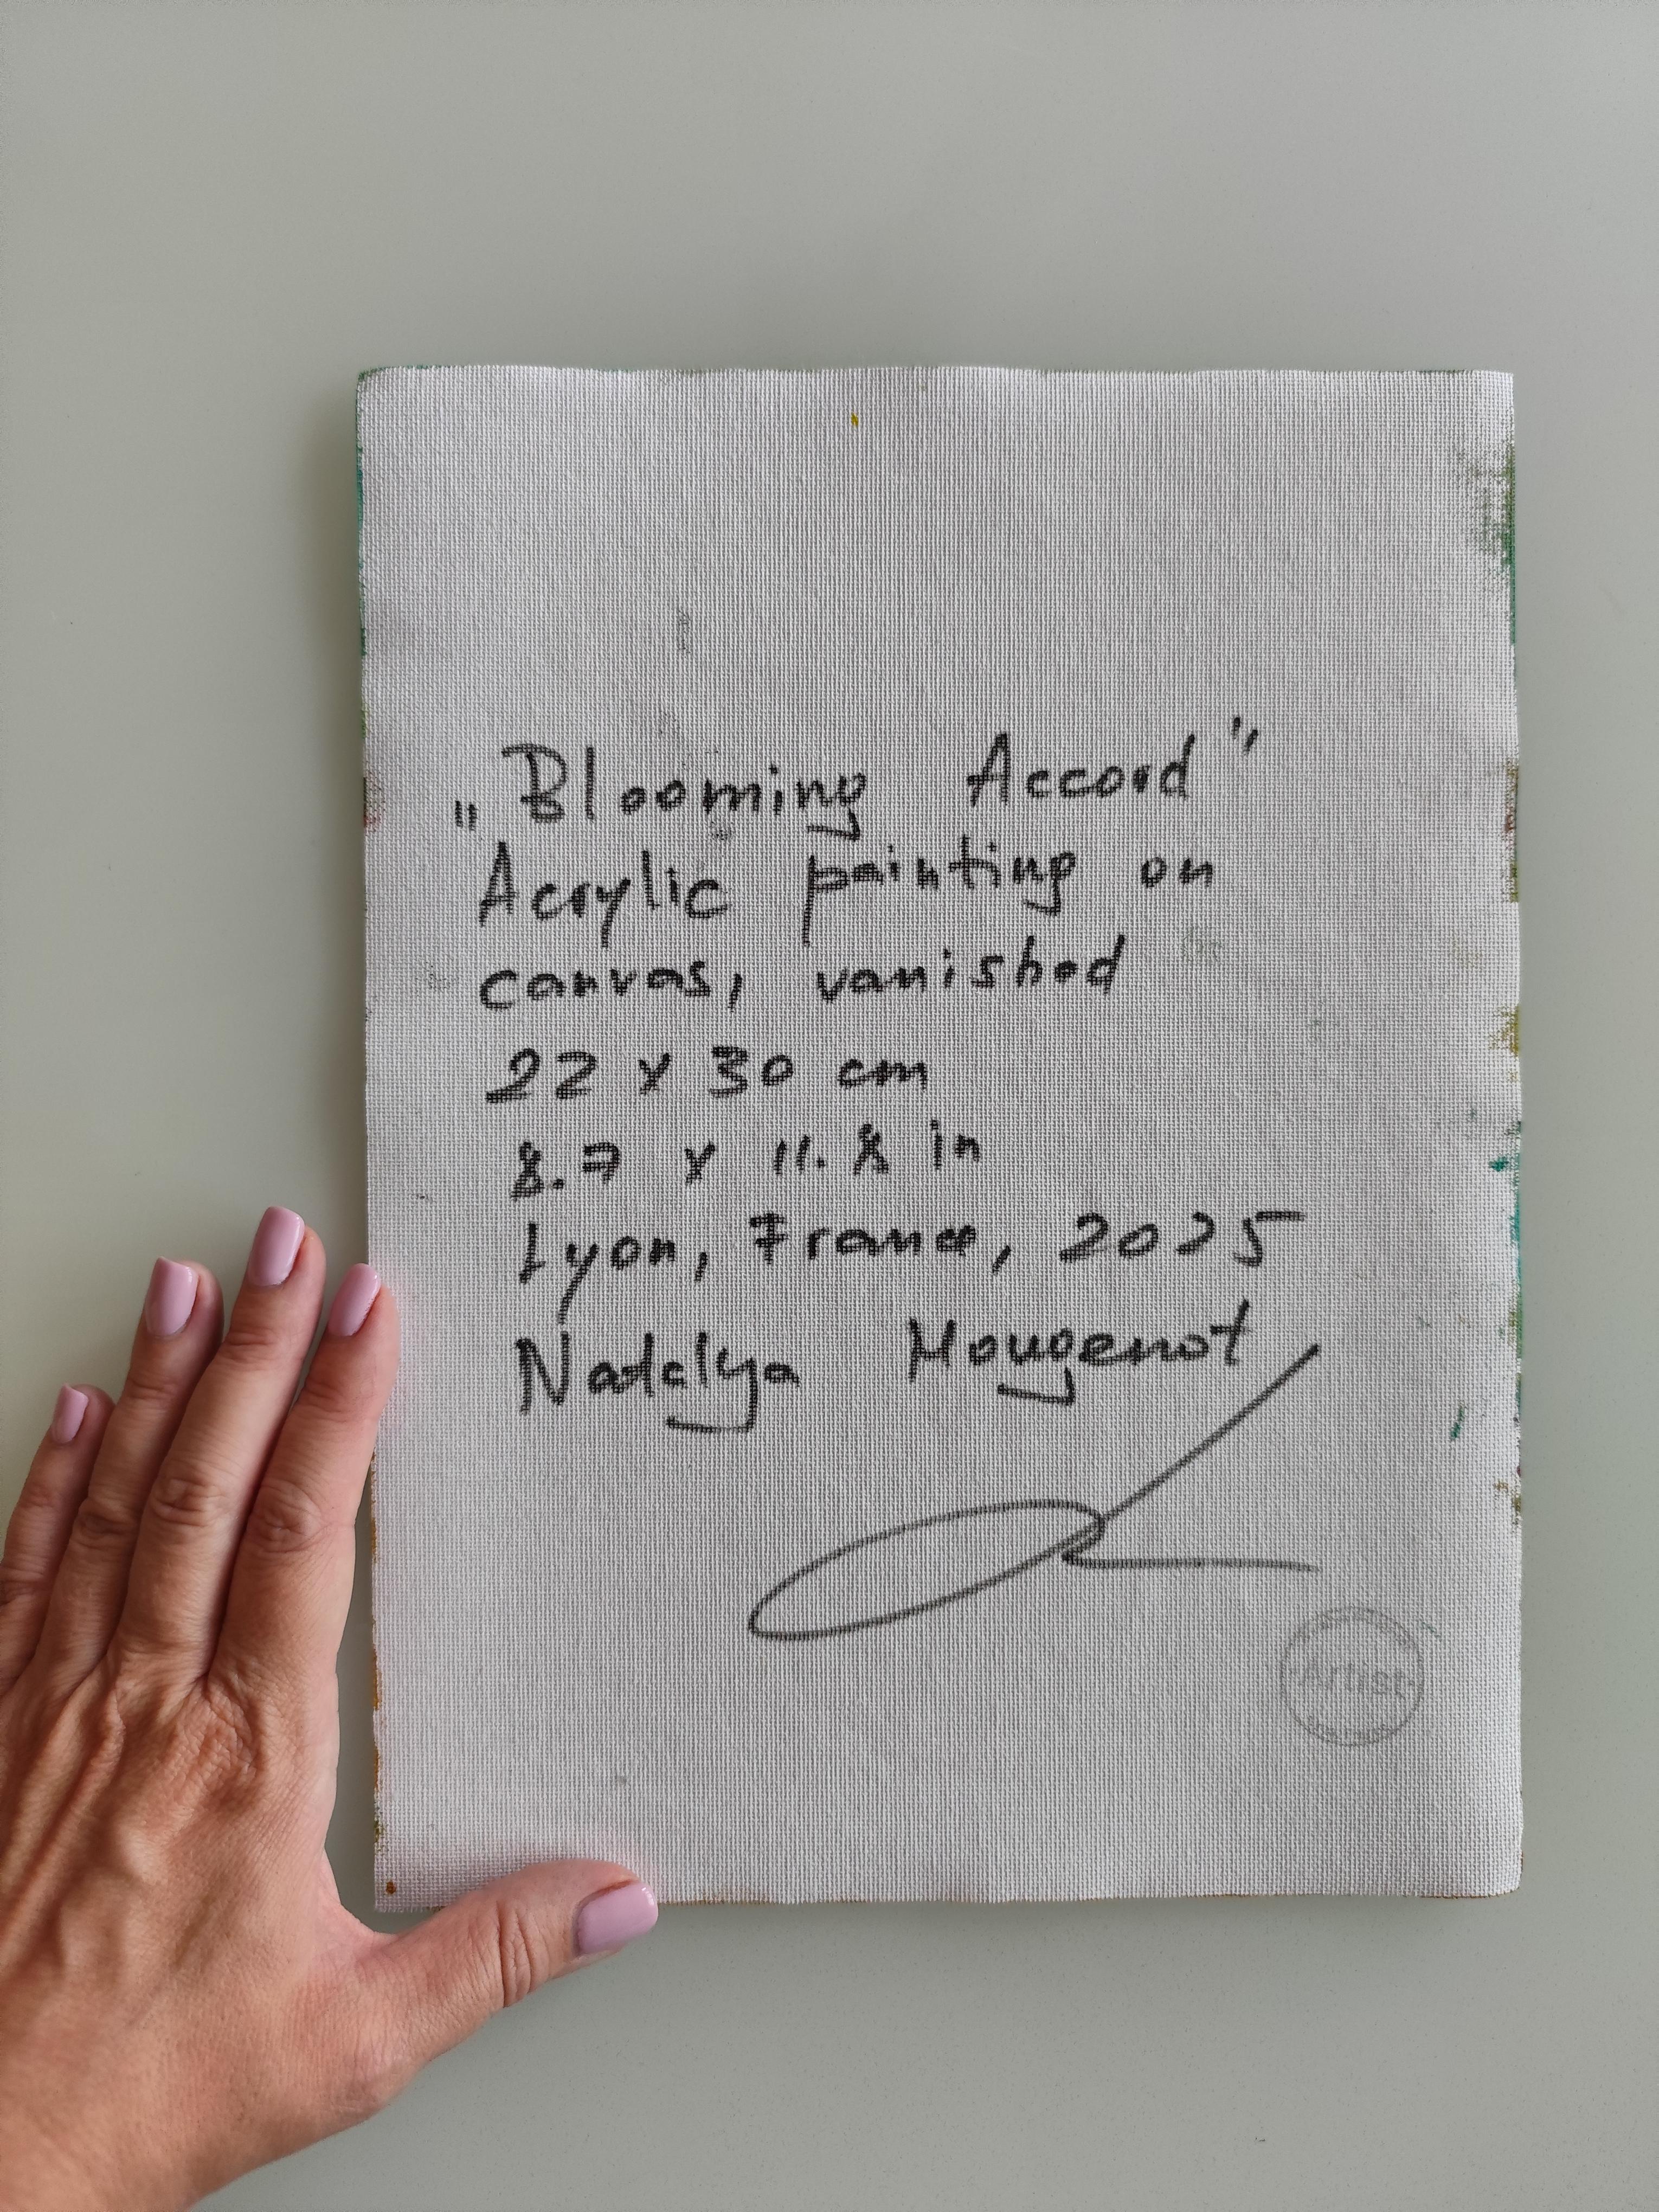 „Blooming Accord”
Acrylic painting on
canvas, vanished
22 x 30 cm
8.7 x 11.8 in
Lyon, France, 2025
Natalya Mougenot
Artist